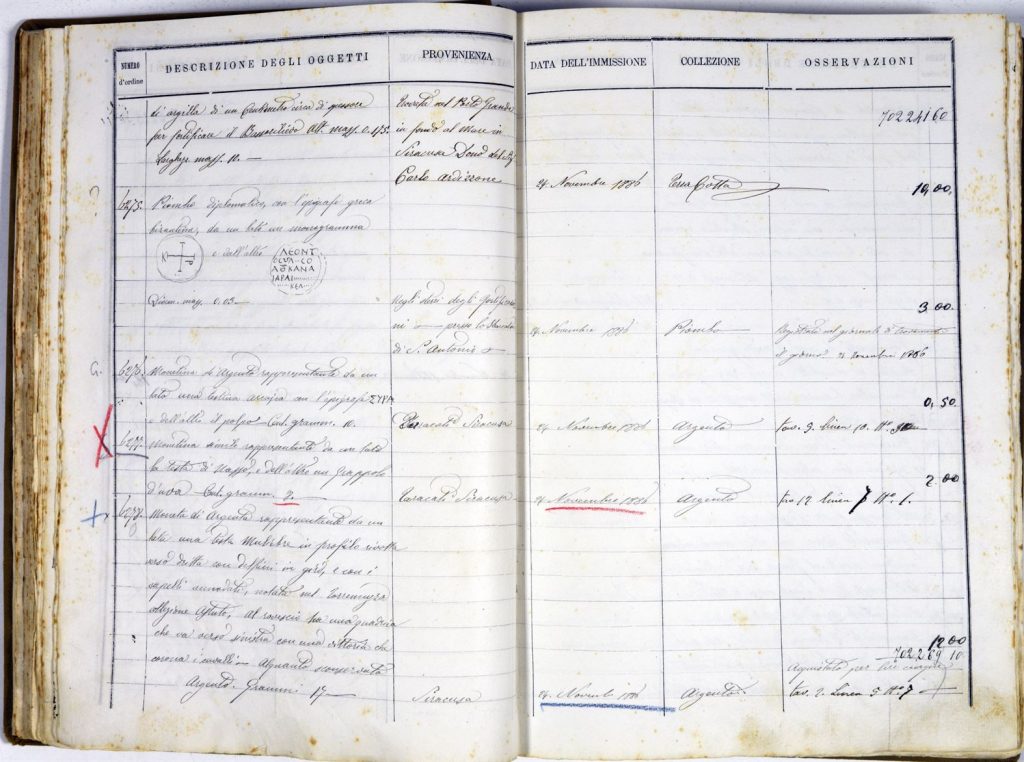 NUMERO
d'ordine
DESCRIZIONE DEGLI OGGETTI
PROVENIENZA
DATA DELL'IMMISSIONE
COLLEZIONE
OSSERVAZIONI
di argilla di un Centimetro circa di spessore
per fortificare il Bassorilievo Alt. mass. 0.175.
Largh. mass. 10. —
Trovato nel Porto Grande
in fondo al Mare in
Siracusa. Dono del Sig.
Carlo Ardizzone
24 Novembre 1886
Terra Cotta
7022460
10,00.
?
6275.
Piombo diplomatico, con l'epigrafe greca
bizantina, da un lato un monogramma
K P
e dall'altro
ΛΕΟΝΤ
Diam. mass. 0.03. —
Negli
di S. Antonio
24 Novembre 1886
Piombo
Registrato nel giornale di
il giorno 2 1886
3,00.
G.
6276.
Monetina di Argento rappresentante da un
lato una testina arcaica con l'epigrafe ΣΥΡΑ
e dell'altro il polpo — Cent. gramm. 10.
Siracusa
24 Novembre 1886
Argento
tav. 9. linea 10. N°
0,50.
X
6277.
Monetina simile rappresentante da un lato
la testa di e dell'altro un Grappolo
d'uva — Cent. gramm. 9. —
Siracusa
24 Novembre 1886
Argento
tav. 12 linea 7 N° 1.
2 00
+
6278.
Moneta di Argento rappresentante da un
lato una testa Muliebre in profilo rivolta
verso dritta con delfini in giro, e con i
capelli annodati, notata nel Torremuzza
al rovescio ha una quadriga
che va verso sinistra con una Vittoria che
corona i cavalli — Alquanto conservata
Argento. Grammi 17 —
Siracusa
24. Novemb 1886
Argento
12 00
702269 10
Acquistata per
tav. 2. Linea 5 N° 7